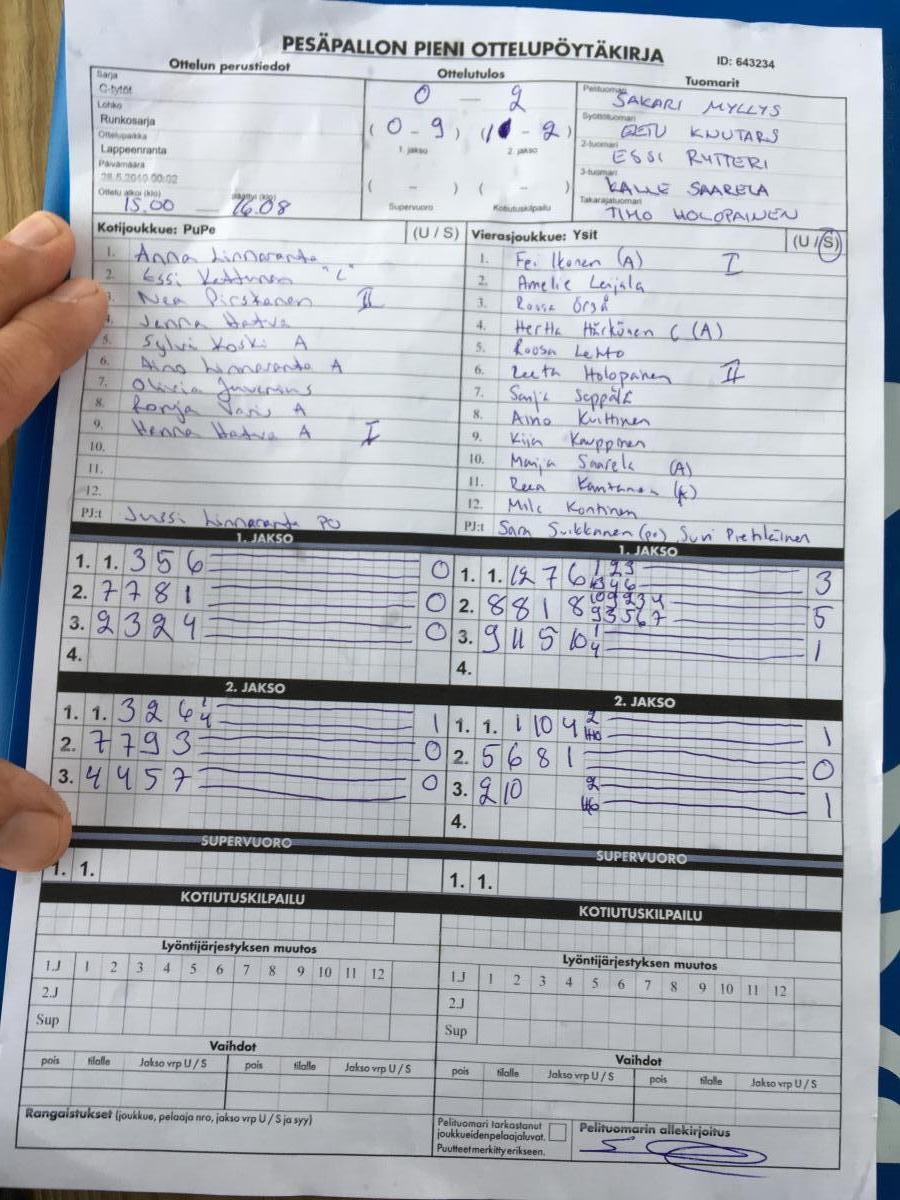 PESÄPALLON PIENI OTTELUPÖYTÄKIRJA
ID: 643234
Ottelun perustiedot
Ottelutulos
Tuomarit
Sarja
C-tytöt
Lohko
Runkosarja
Ottelupaikka
Lappeenranta
Päivämäärä
Ottelu alkoi (klo) päättyi (klo)
15.00 — 16.08
0 — 2
(0 - 9) (1 - 2)
1. jakso 2. jakso
( - ) ( - )
Supervuoro Kotiutuskilpailu
Pelituomari SAKARI MYLLYS
Syöttötuomari EETU KNUTARS
2-tuomari ESSI RYTTERI
3-tuomari KALLE SAARELA
Takarajatuomari TIMO HOLOPAINEN
Kotijoukkue: PuPe (U / S)
1. Anna Linnaranta
2. Essi Kettunen "C"
3. Nea Pirskanen II
4. Jenna Hatva
5. Sylvi Koski A
6. Aino Linnaranta A
7. Olivia
8. Ronja Varis A
9. Henna Hatva A I
10.
11.
12.
PJ:t Jussi Linnaranta PO
Vierasjoukkue: Ysit (U / S)
1. Fei Ikonen (A) I
2. Amelie Leijala
3. Roosa
4. Hertta Härkönen C (A)
5. Roosa Lehto
6. Reeta Holopainen II
7. Sanja Seppälä
8. Aino Kuittinen
9. Kiia Kauppinen
10. Marja Saarela (A)
11. Reea Kantanen
12. Mila Kontinen
PJ:t Sam Suikkanen (po), Suvi Pietiläinen
1. JAKSO
1. 1. 3 5 6 0
2. 7 7 8 1 0
3. 2 3 2 4 0
4.
1. JAKSO
1. 1. 12 7 6 3
2. 8 8 1 8 5
3. 9 11 5 10 1
4.
2. JAKSO
1. 1. 3 2 6 1
2. 7 7 9 3 0
3. 4 4 5 7 0
2. JAKSO
1. 1. 1 10 4 1
2. 5 6 8 1 0
3. 2 10 1
4.
SUPERVUORO
1. 1.
SUPERVUORO
1. 1.
KOTIUTUSKILPAILU
KOTIUTUSKILPAILU
Lyöntijärjestyksen muutos
1.J 1 2 3 4 5 6 7 8 9 10 11 12
2.J
Sup
Lyöntijärjestyksen muutos
1.J 1 2 3 4 5 6 7 8 9 10 11 12
2.J
Sup
Vaihdot
pois tilalle Jakso vrp U / S pois tilalle Jakso vrp U / S
Vaihdot
pois tilalle Jakso vrp U / S pois tilalle Jakso vrp U / S
Rangaistukset (joukkue, pelaaja nro, jakso vrp U / S ja syy)
Pelituomari tarkastanut
joukkueidenpelaajaluvat.
Puutteet merkitty erikseen.
Pelituomarin allekirjoitus